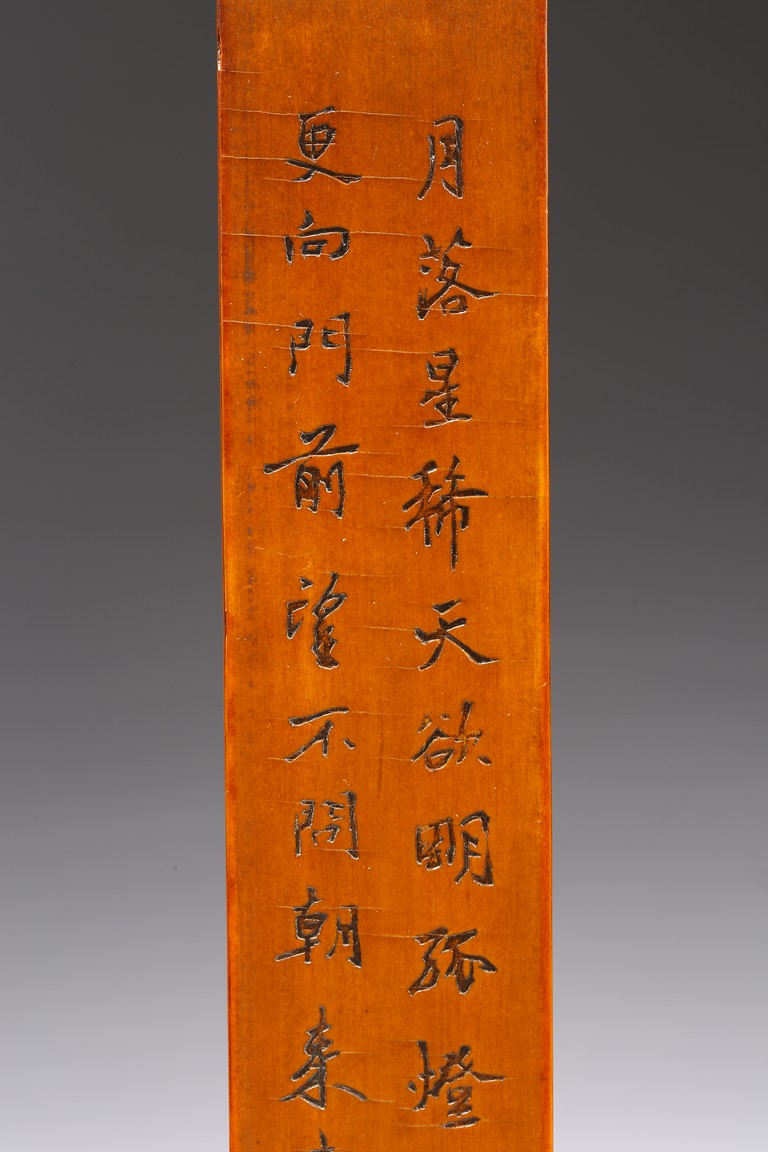 月落星稀天欲明孤燈
更向門前望不問朝來